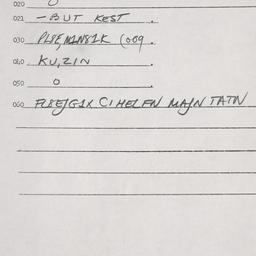 020 O
021 - BUT KEST .
030 PL8E,N1N81K (009 .
040 KU,ZIN .
050 O .
060 FL8EJG1X CIHELFN MAJN TATN